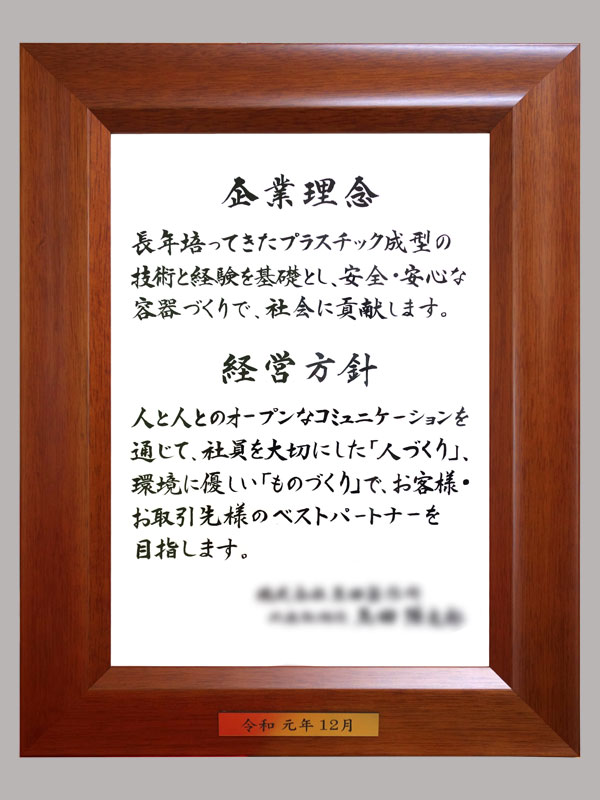 企業理念
長年培ってきたプラスチック成型の
技術と経験を基礎とし、安全・安心な
容器づくりで、社会に貢献します。
経営方針
人と人とのオープンなコミュニケーションを
通じて、社員を大切にした「人づくり」、
環境に優しい「ものづくり」で、お客様・
お取引先様のベストパートナーを
目指します。
令和 元年 12月